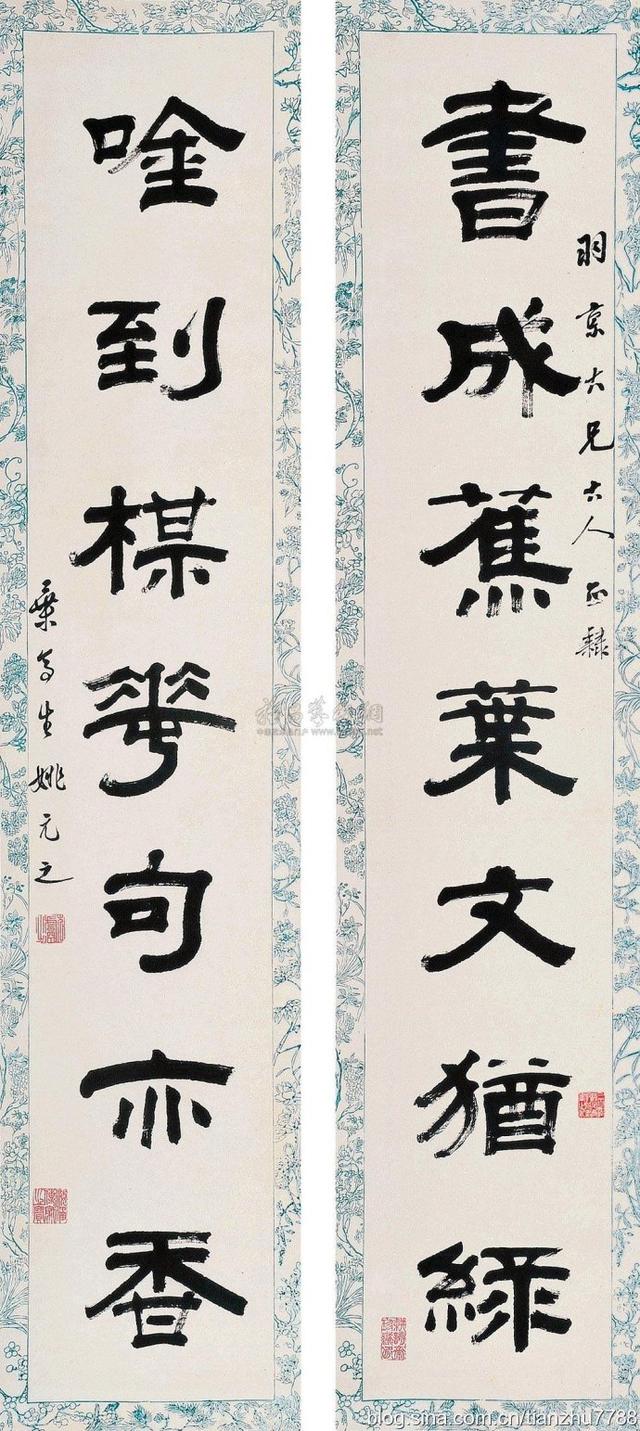 書成蕉葉文猶綠
羽京大兄大人正隸
唫到楳華句亦香
葉亭生姚元之
blog.sina.com.cn/tianzhu7788